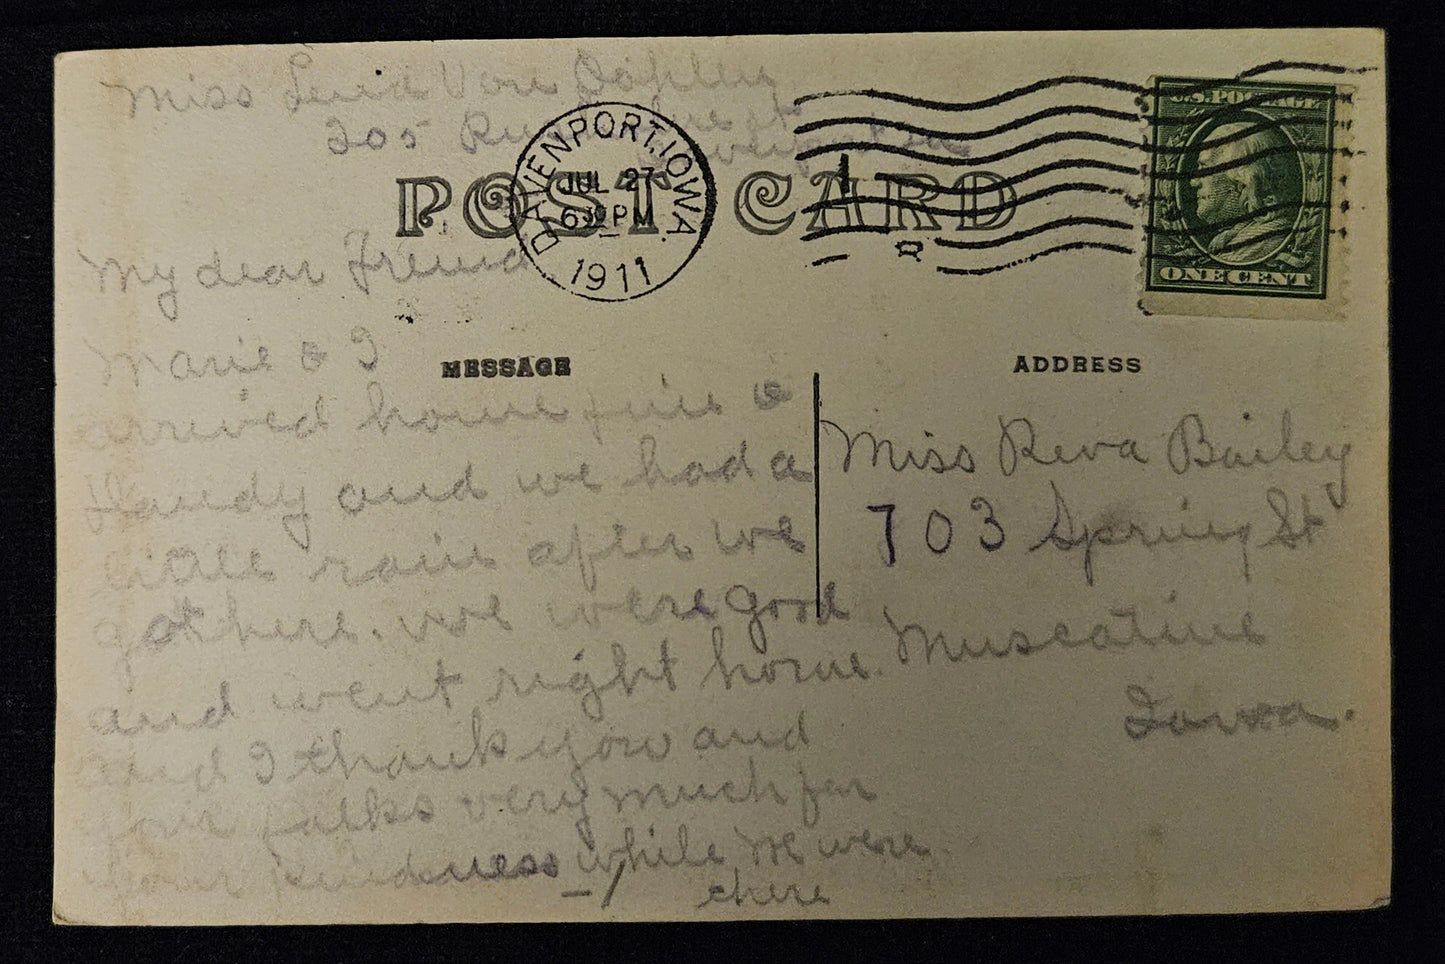 Miss Von
205
POST CARD
DAVENPORT, IOWA.
JUL 27
630PM
1911
U.S. POSTAGE
ONE CENT
My dear Friend
MESSAGE
Marie & I
arrived home fine &
dandy and we had a
little rain after we
got here. we were good
and went right home.
and I thank you and
your folks very much for
your kindness while we were
there
ADDRESS
Miss Reva Bailey
703 Spring St
Muscatine
Iowa.